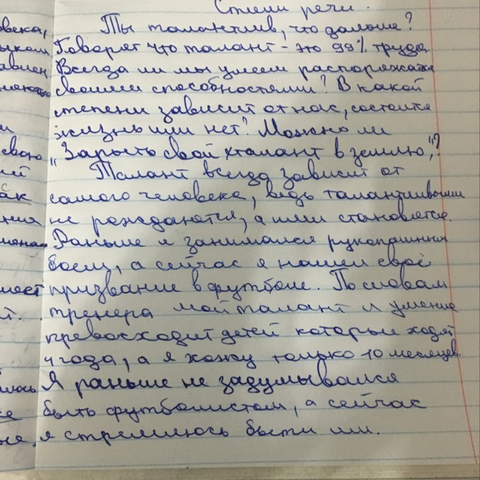 Стили речи.
Ты талантлив, что дальше?
Говорят что талант - это 99% труда.
Всегда ли мы умеем распоряжаться
своими способностями? В какой
степени зависит от нас, состоится
жизнь или нет? Можно ли
„Зарыть свой талант в землю„?
Талант всегда зависит от
самого человека, ведь талантливыми
не рождаются, а ими становятся.
Раньше я занимался рукопашным
боем, а сейчас я нашел своё
призвание в футболе. По словам
тренера мой талант и умение
превосходит детей которые ходят
4 года, а я хожу только 10 месяцев.
Я раньше не задумывался
быть футболистом, а сейчас
я стремлюсь быть им.